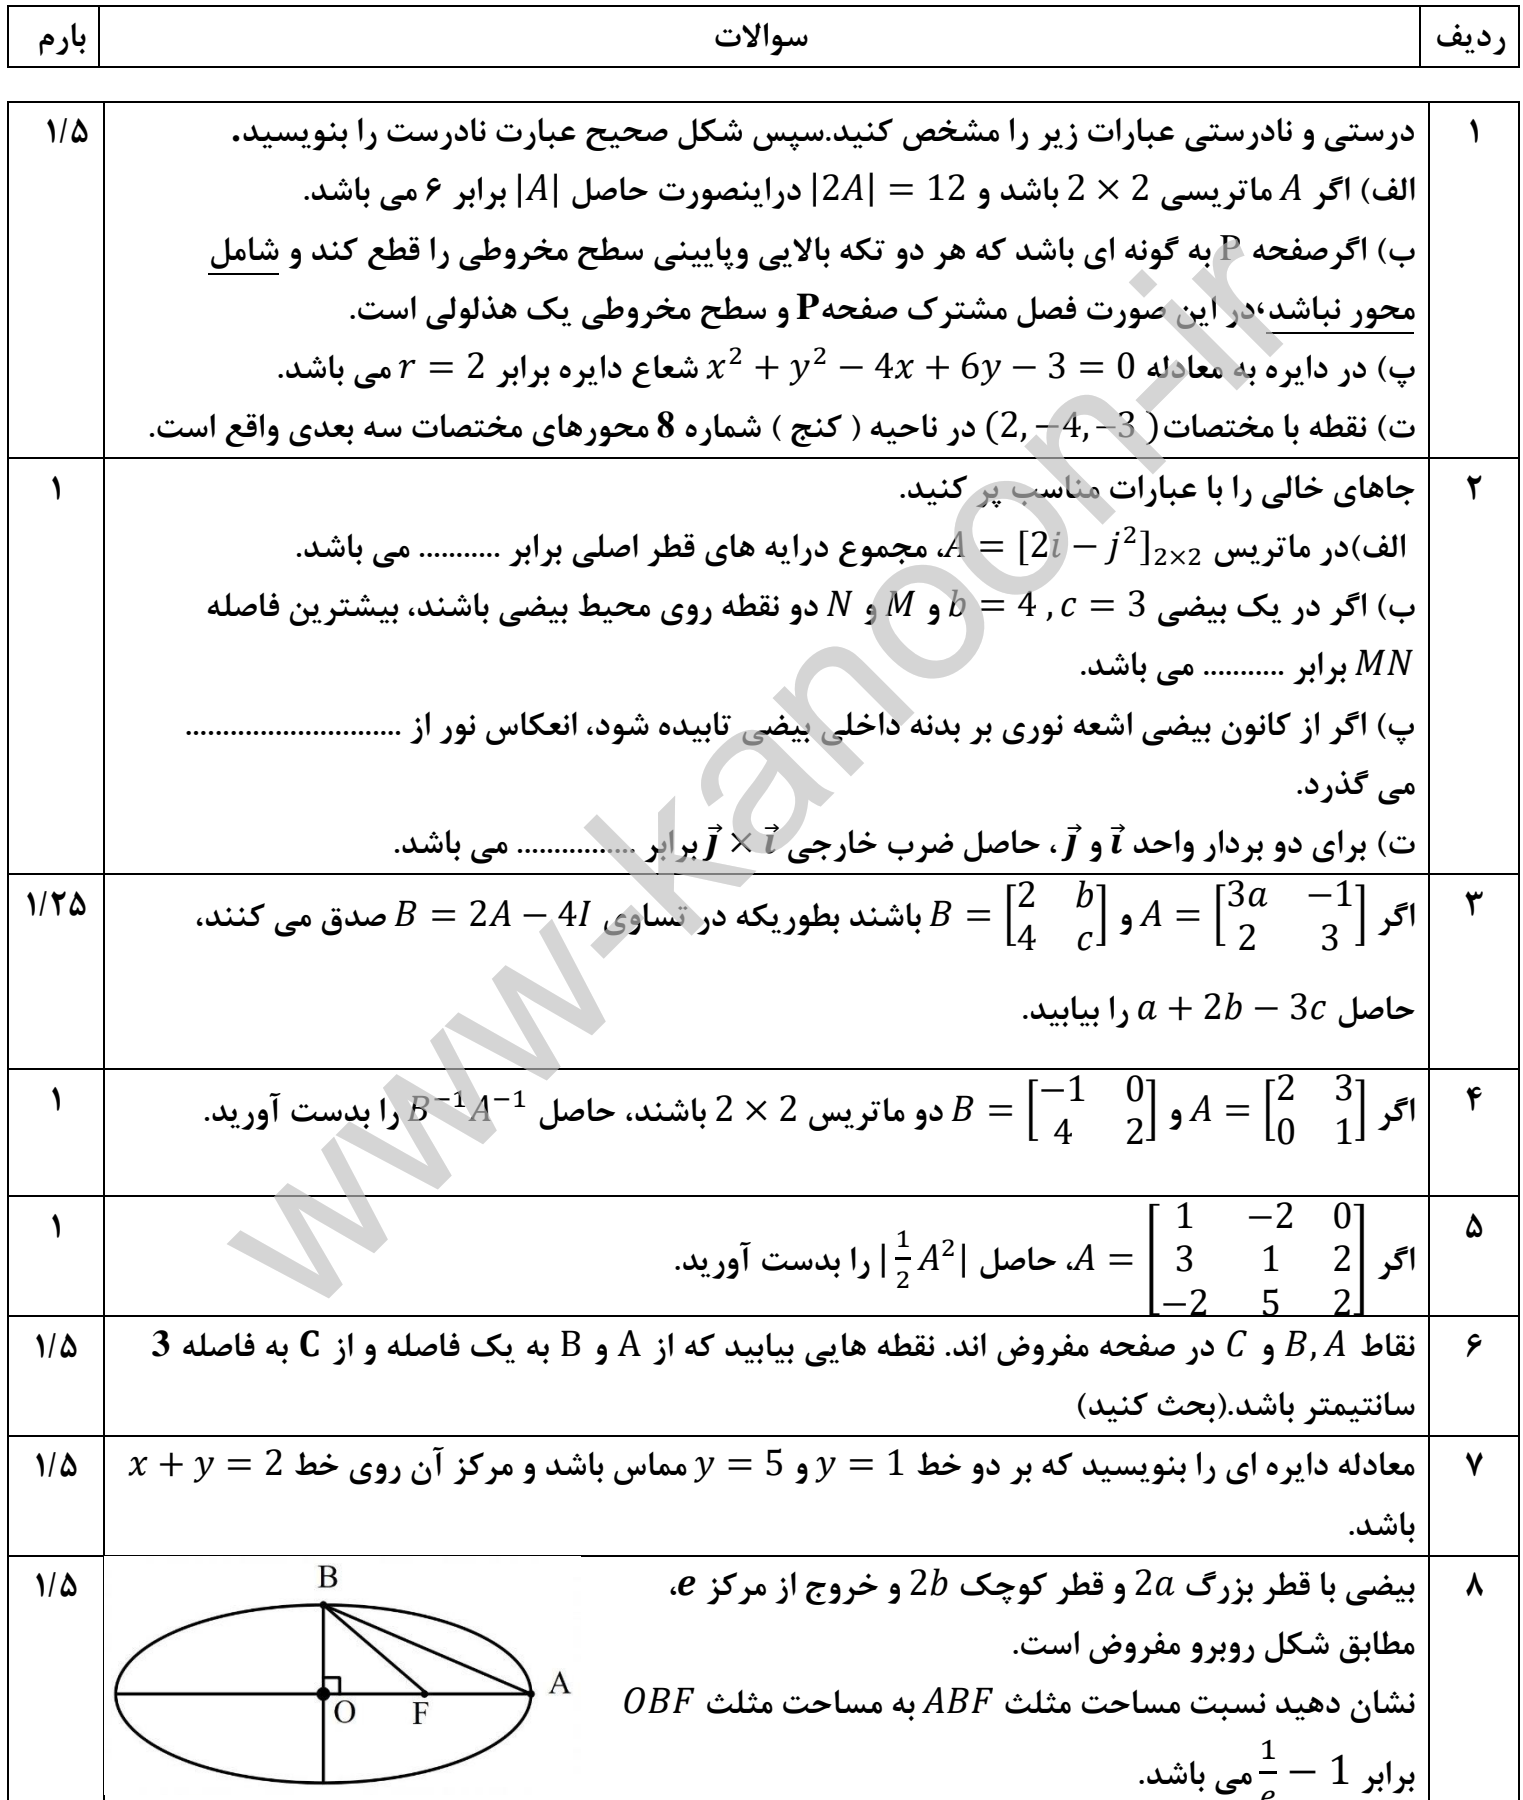 ردیف سوالات بارم
۱ درستی و نادرستی عبارات زیر را مشخص کنید.سپس شکل صحیح عبارت نادرست را بنویسید. ۱/۵
الف) اگر A ماتریسی 2 × 2 باشد و |2A| = 12 دراینصورت حاصل |A| برابر ۶ می باشد.
ب) اگرصفحه P به گونه ای باشد که هر دو تکه بالایی وپایینی سطح مخروطی را قطع کند و شامل
محور نباشد،در این صورت فصل مشترک صفحهP و سطح مخروطی یک هذلولی است.
پ) در دایره به معادله x² + y² − 4x + 6y − 3 = 0 شعاع دایره برابر r = 2 می باشد.
ت) نقطه با مختصات (2, −4, −3) در ناحیه ( کنج ) شماره 8 محورهای مختصات سه بعدی واقع است.
۲ جاهای خالی را با عبارات مناسب پر کنید. ۱
الف)در ماتریس A = [2i − j²]₂ₓ₂، مجموع درایه های قطر اصلی برابر ........... می باشد.
ب) اگر در یک بیضی b = 4 , c = 3 و M و N دو نقطه روی محیط بیضی باشند، بیشترین فاصله
MN برابر ........... می باشد.
پ) اگر از کانون بیضی اشعه نوری بر بدنه داخلی بیضی تابیده شود، انعکاس نور از .............................
می گذرد.
ت) برای دو بردار واحد i⃗ و j⃗ ، حاصل ضرب خارجی j⃗ × i⃗ برابر ................ می باشد.
۳ اگر A = [3a −1; 2 3] و B = [2 b; 4 c] باشند بطوریکه در تساوی B = 2A − 4I صدق می کنند، ۱/۲۵
حاصل a + 2b − 3c را بیابید.
۴ اگر A = [2 3; 0 1] و B = [−1 0; 4 2] دو ماتریس 2 × 2 باشند، حاصل B⁻¹A⁻¹ را بدست آورید. ۱
۵ اگر A = [1 −2 0; 3 1 2; −2 5 2]، حاصل |½A²| را بدست آورید. ۱
۶ نقاط B, A و C در صفحه مفروض اند. نقطه هایی بیابید که از A و B به یک فاصله و از C به فاصله 3 ۱/۵
سانتیمتر باشد.(بحث کنید)
۷ معادله دایره ای را بنویسید که بر دو خط y = 1 و y = 5 مماس باشد و مرکز آن روی خط x + y = 2 ۱/۵
باشد.
۸ بیضی با قطر بزرگ 2a و قطر کوچک 2b و خروج از مرکز e، ۱/۵
مطابق شکل روبرو مفروض است.
نشان دهید نسبت مساحت مثلث ABF به مساحت مثلث OBF
برابر 1/e − 1 می باشد.
B
A
O F
www-kanoon-ir